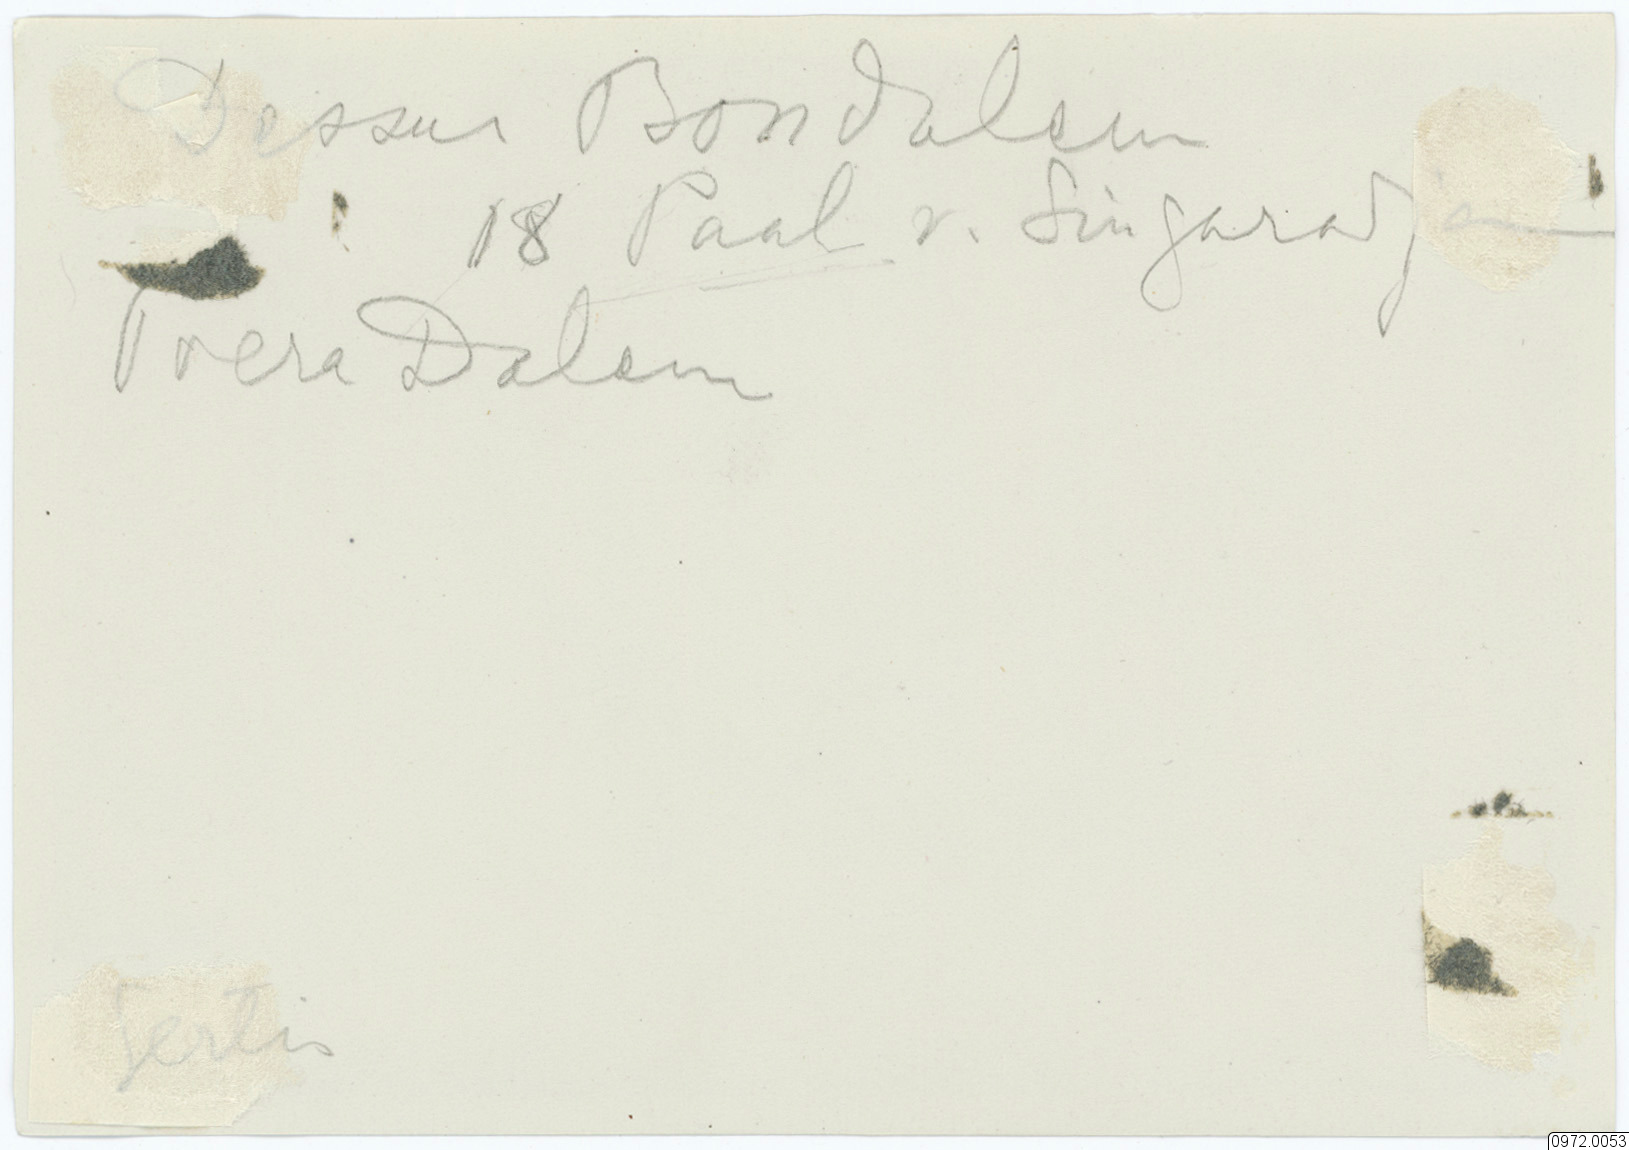 Dessa Bondalem
18 Paal v. Singaradja
Poera Dalem
0972.0053